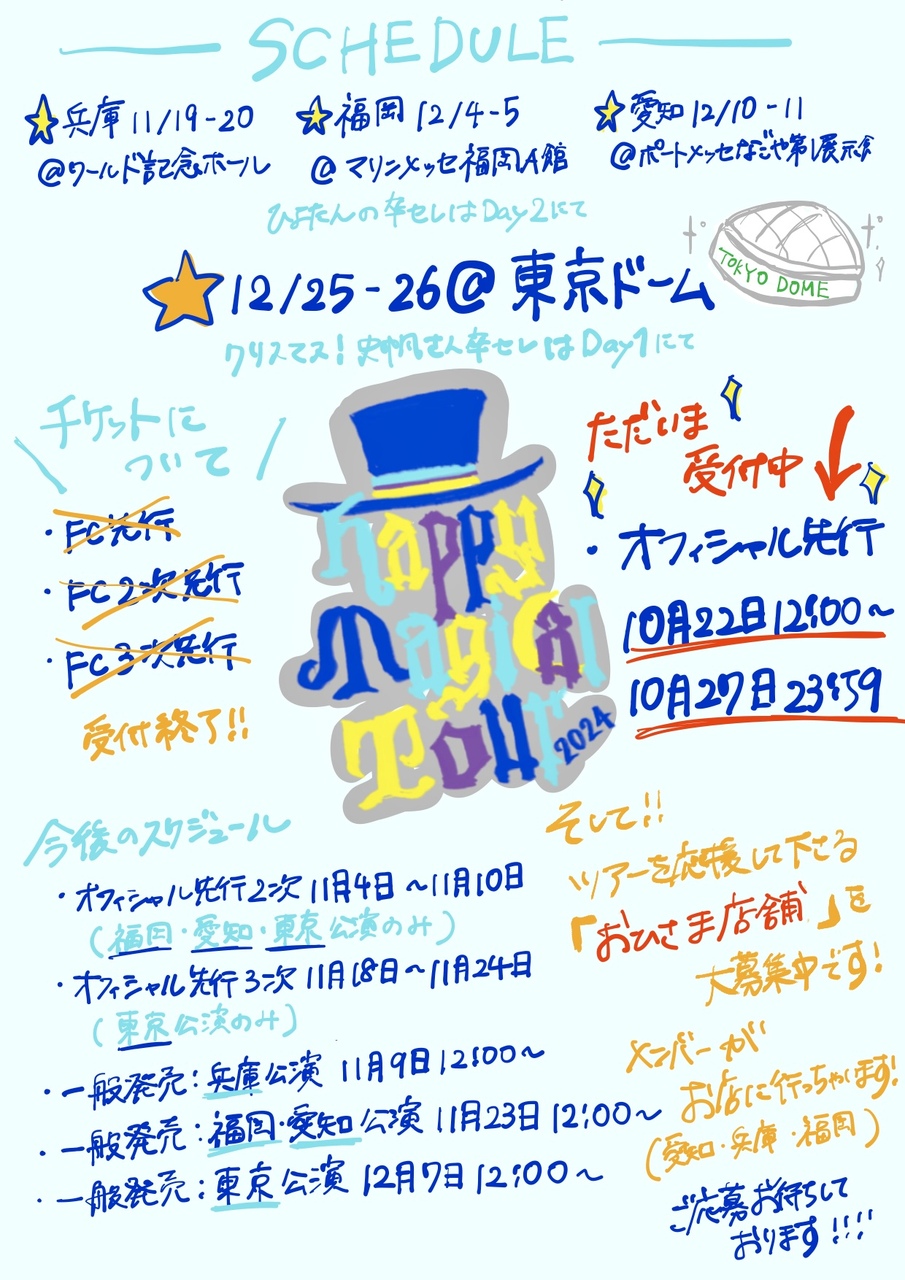 SCHEDULE
兵庫 11/19-20
@ワールド記念ホール
福岡 12/4-5
@マリンメッセ福岡A館
愛知 12/10-11
@ポートメッセなごや第1展示館
ひよたんの卒セレはDay2にて
12/25-26@東京ドーム
TOKYO DOME
クリスマス！史帆さん卒セレはDay1にて
チケットに
ついて
・FC先行
・FC2次先行
・FC3次先行
受付終了!!
Happy
Magical
Tour
2024
ただいま
受付中
・オフィシャル先行
10月22日12:00~
10月27日23:59
今後のスケジュール
・オフィシャル先行2次 11月4日~11月10日
(福岡・愛知・東京公演のみ)
・オフィシャル先行3次 11月18日~11月24日
(東京公演のみ)
・一般発売:兵庫公演 11月9日12:00~
・一般発売:福岡・愛知公演 11月23日12:00~
・一般発売:東京公演 12月7日12:00~
そして!!
ツアーを応援して下さる
「おひさま店舗」を
大募集中です!
メンバーが
お店に行っちゃいます!
(愛知・兵庫・福岡)
ご応募お待ちして
おります!!!!